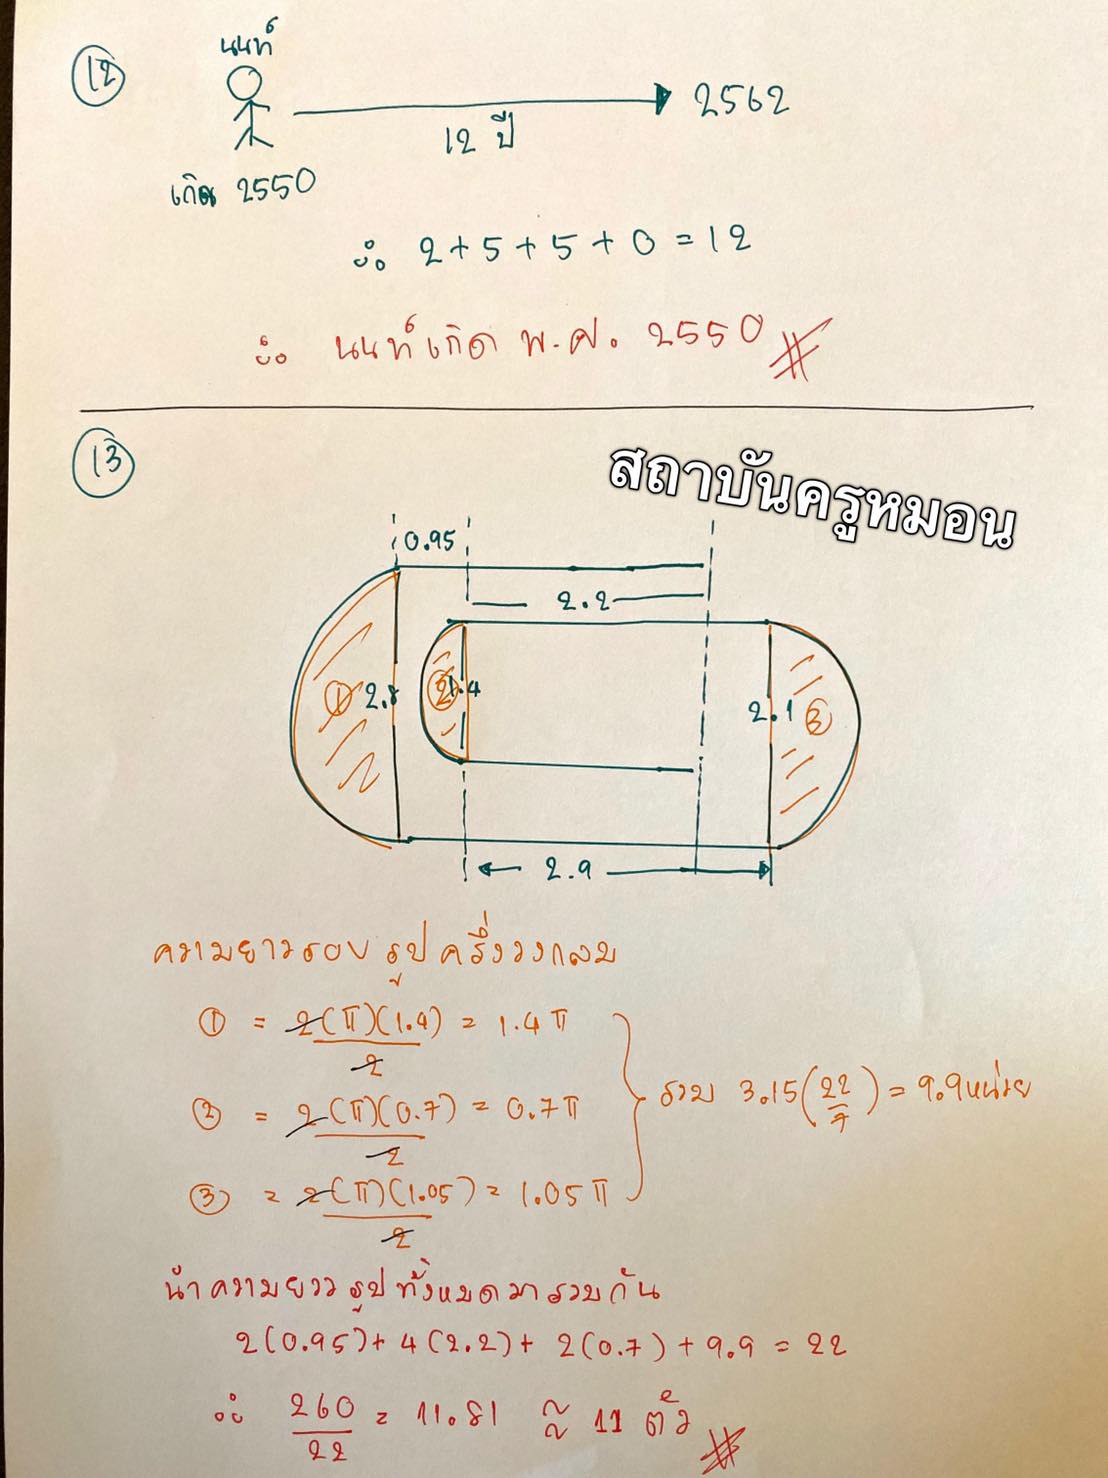 12
นนท์
12 ปี
2562
เกิด 2550
∴ 2+5+5+0 = 12
∴ นนท์เกิด พ.ศ. 2550
13
สถาบันครูหมอน
0.95
2.2
1 2.8
2 1.4
2.1 3
2.9
ความยาวรอบ รูป ครึ่งวงกลม
1 = 2(π)(1.4)/2 = 1.4π
2 = 2(π)(0.7)/2 = 0.7π
รวม 3.15(22/7) = 9.9 หน่วย
3 = 2(π)(1.05)/2 = 1.05π
นำความยาว รูป ทั้งหมดมารวมกัน
2(0.95)+ 4(2.2)+ 2(0.7)+ 9.9 = 22
∴ 260/22 = 11.81 ≈ 11 ตัว